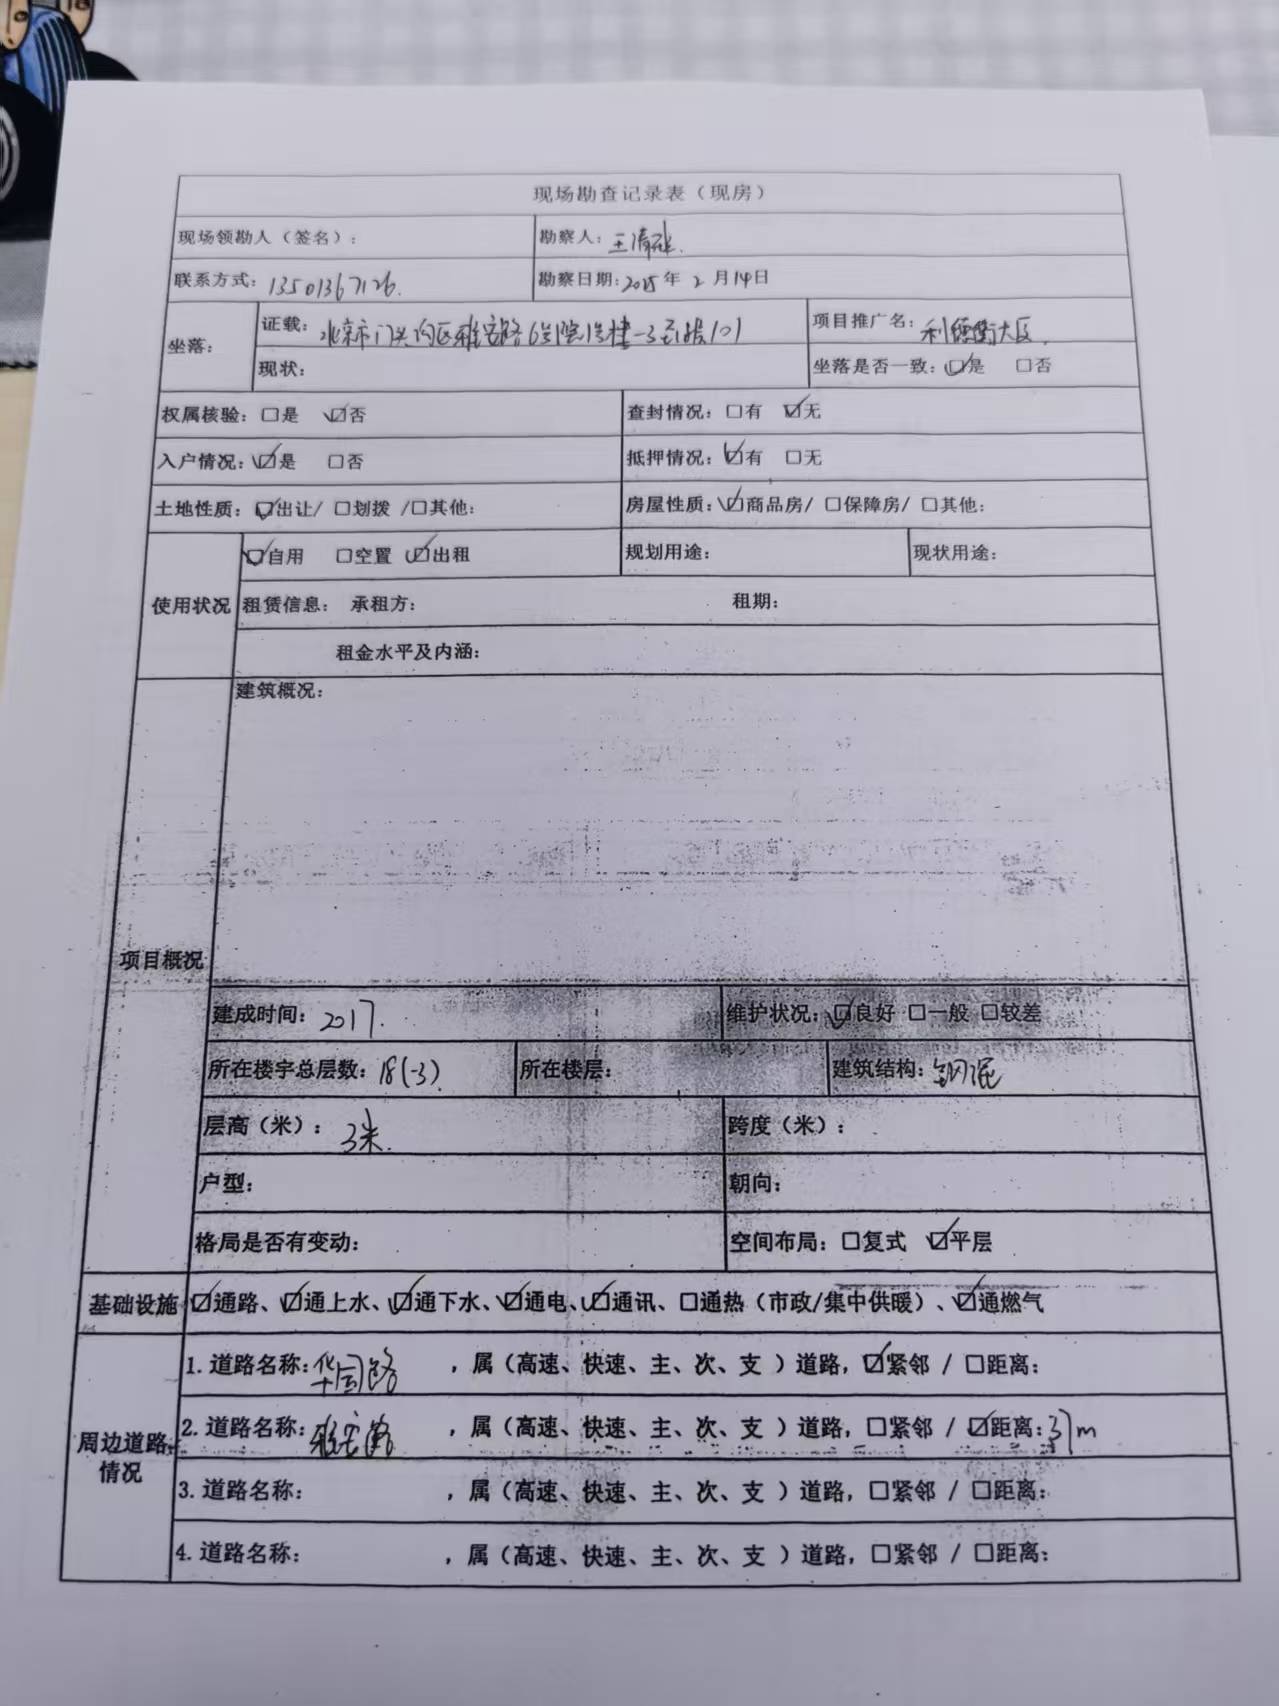 现场勘查记录表（现房）
现场领勘人（签名）： 勘察人：王清
联系方式：13501367126. 勘察日期：2025年2月14日
坐落： 证载：北京市门头沟区雅安路6号院1号楼-3至1层101 项目推广名：利德衡大厦
现状： 坐落是否一致：☑是 □否
权属核验：□是 ☑否 查封情况：□有 ☑无
入户情况：☑是 □否 抵押情况：☑有 □无
土地性质：☑出让/ □划拨 /□其他： 房屋性质：☑商品房/ □保障房/ □其他：
使用状况 ☑自用 □空置 ☑出租 规划用途： 现状用途：
租赁信息： 承租方： 租期：
租金水平及内涵：
项目概况 建筑概况：
建成时间：2017. 维护状况：☑良好 □一般 □较差
所在楼宇总层数：18(-3) 所在楼层： 建筑结构：钢混
层高（米）：3米. 跨度（米）：
户型： 朝向：
格局是否有变动： 空间布局：□复式 ☑平层
基础设施 ☑通路、☑通上水、☑通下水、☑通电、☑通讯、□通热（市政/集中供暖）、☑通燃气
周边道路情况 1.道路名称：华园路 ，属（高速、快速、主、次、支 ）道路，☑紧邻 / □距离：
2.道路名称：雅安路 ，属（高速、快速、主、次、支 ）道路，□紧邻 / ☑距离：37m
3.道路名称： ，属（高速、快速、主、次、支 ）道路，□紧邻 / □距离：
4.道路名称： ，属（高速、快速、主、次、支 ）道路，□紧邻 / □距离：